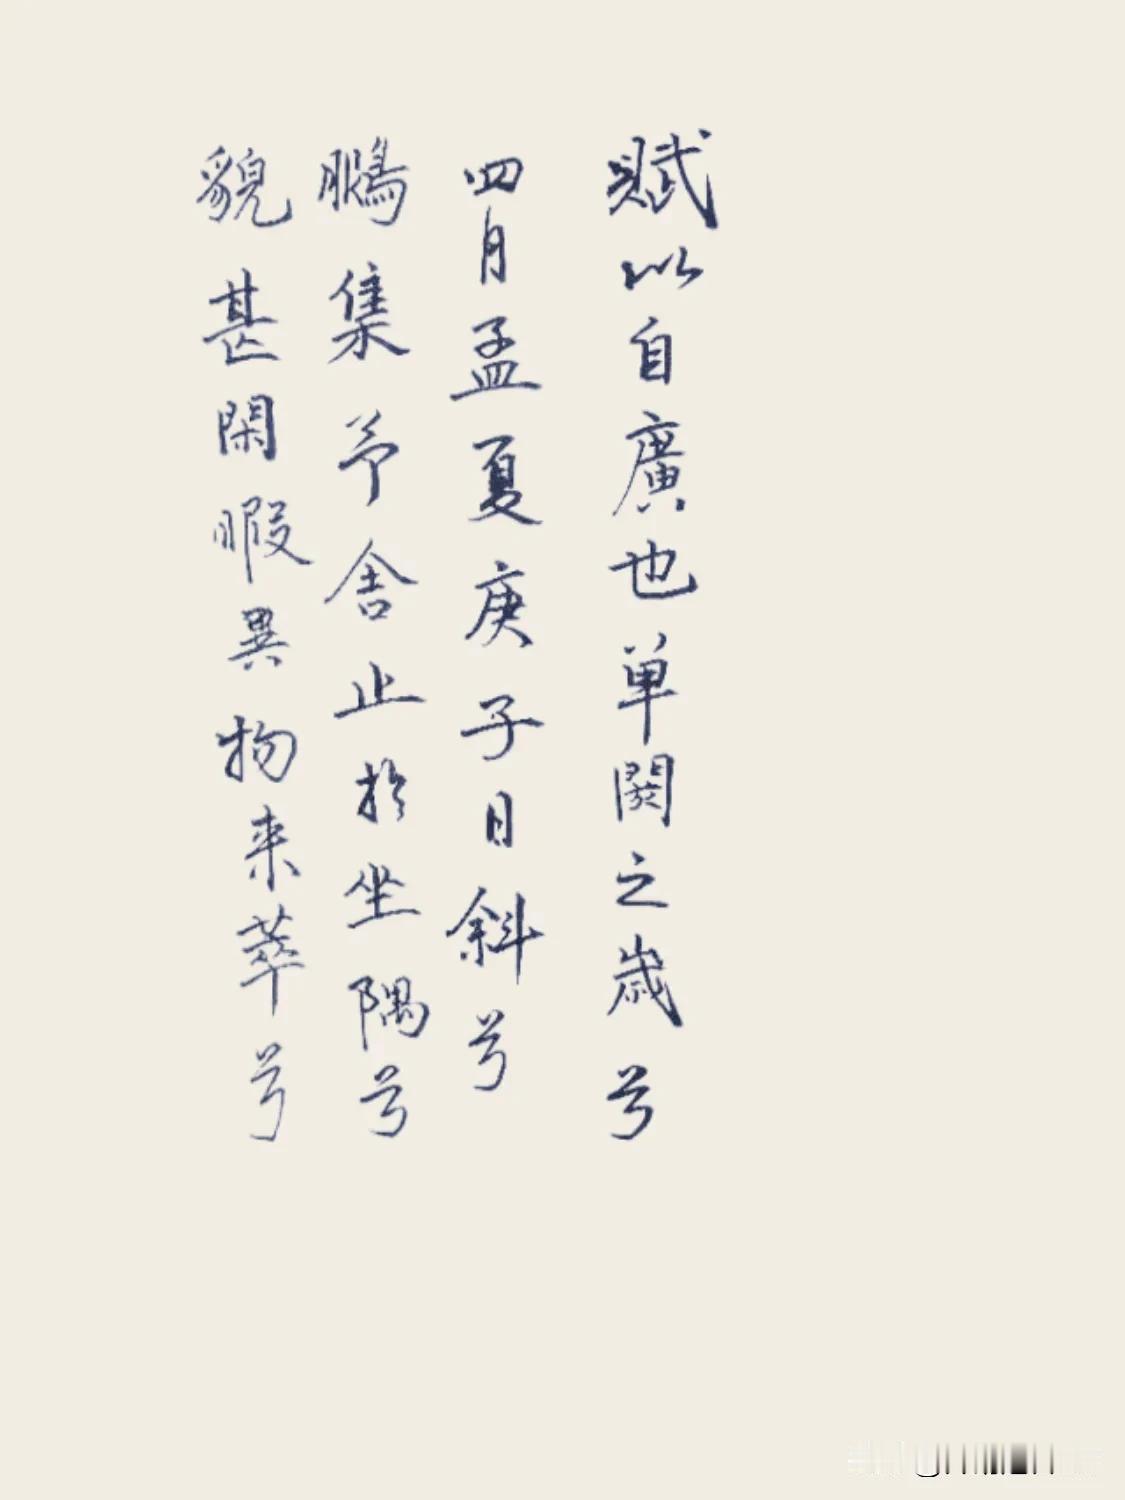 賦以自廣也单閼之歳兮
四月孟夏庚子日斜兮
鵩集予舎止於坐隅兮
貌甚閑暇異物来萃兮